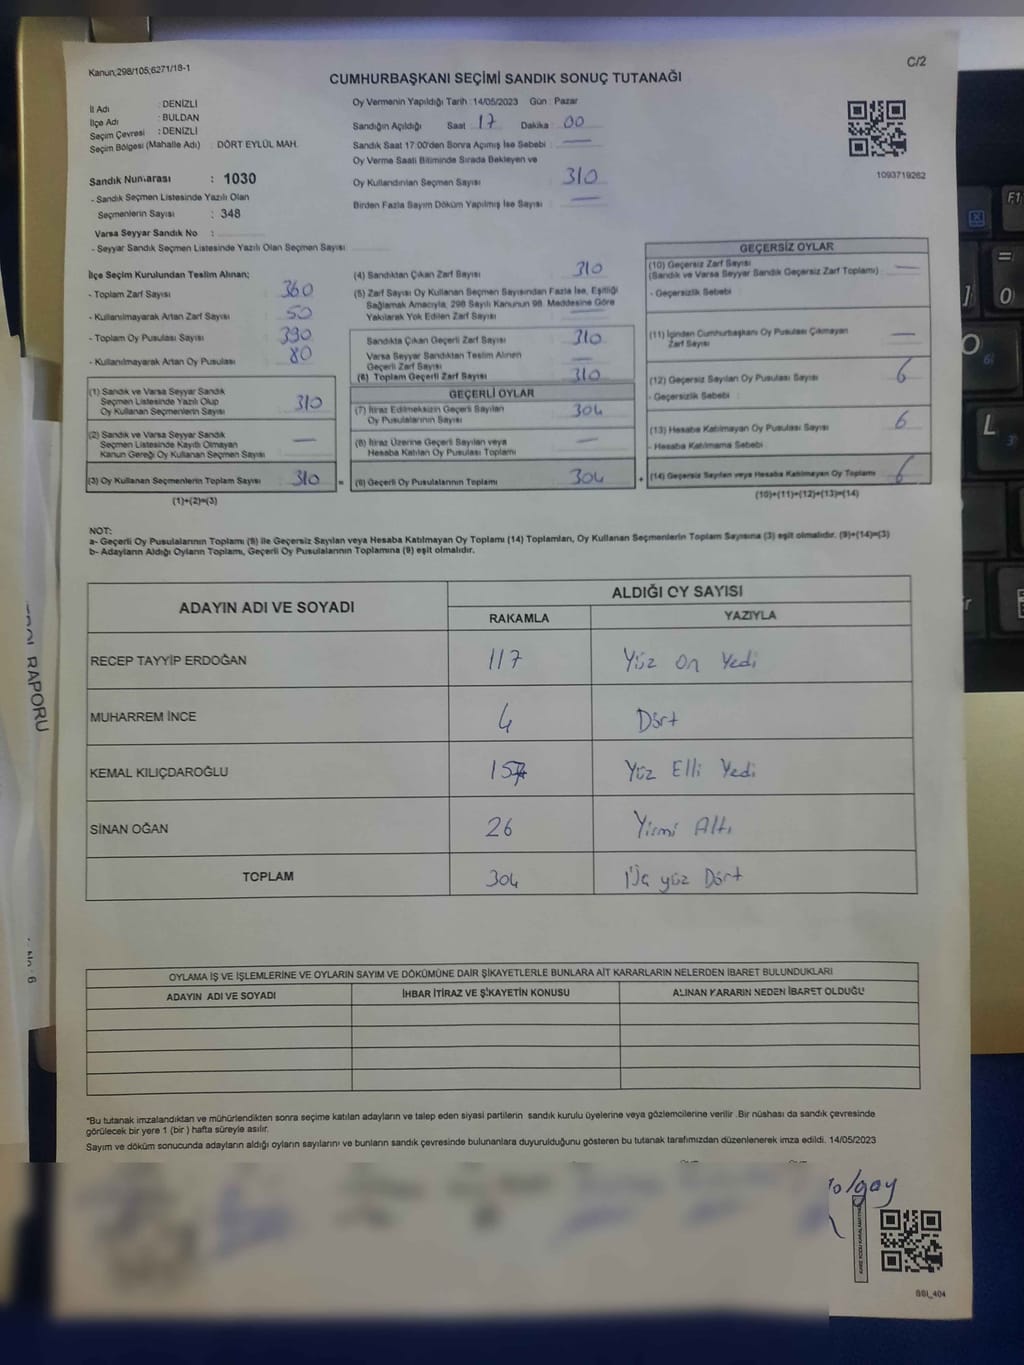 Kanun;298/105;6271/18-1
C/2
CUMHURBAŞKANI SEÇİMİ SANDIK SONUÇ TUTANAĞI
İl Adı : DENİZLİ
İlçe Adı : BULDAN
Seçim Çevresi : DENİZLİ
Seçim Bölgesi (Mahalle Adı) : DÖRT EYLÜL MAH.
Sandık Numarası : 1030
- Sandık Seçmen Listesinde Yazılı Olan
Seçmenlerin Sayısı : 348
Varsa Seyyar Sandık No :
- Seyyar Sandık Seçmen Listesinde Yazılı Olan Seçmen Sayısı
Oy Vermenin Yapıldığı Tarih : 14/05/2023 Gün : Pazar
Sandığın Açıldığı Saat 17 Dakika 00
Sandık Saat 17:00'den Sonra Açımış İse Sebebi : —
Oy Verme Saati Bitiminde Sırada Bekleyen ve
Oy Kullandırılan Seçmen Sayısı 310
Birden Fazla Sayım Döküm Yapılmış İse Sayısı —
1093719262
İlçe Seçim Kurulundan Teslim Alınan;
- Toplam Zarf Sayısı 360
- Kullanılmayarak Artan Zarf Sayısı 50
- Toplam Oy Pusulası Sayısı 390
- Kullanılmayarak Artan Oy Pusulası 80
(1) Sandık ve Varsa Seyyar Sandık
Seçmen Listesinde Yazılı Olup
Oy Kullanan Seçmenlerin Sayısı 310
(2) Sandık ve Varsa Seyyar Sandık
Seçmen Listesinde Kayıtlı Olmayan
Kanun Gereği Oy Kullanan Seçmen Sayısı —
(3) Oy Kullanan Seçmenlerin Toplam Sayısı 310 =
(1)+(2)=(3)
(4) Sandıktan Çıkan Zarf Sayısı 310
(5) Zarf Sayısı Oy Kullanan Seçmen Sayısından Fazla İse, Eşitliği
Sağlamak Amacıyla, 298 Sayılı Kanunun 98. Maddesine Göre
Yakılarak Yok Edilen Zarf Sayısı —
Sandıkta Çıkan Geçerli Zarf Sayısı 310
Varsa Seyyar Sandıktan Teslim Alınan
Geçerli Zarf Sayısı —
(6) Toplam Geçerli Zarf Sayısı 310
GEÇERLİ OYLAR
(7) İtiraz Edilmeksizin Geçerli Sayılan
Oy Pusulalarının Sayısı 304
(8) İtiraz Üzerine Geçerli Sayılan veya
Hesaba Katılan Oy Pusulası Toplamı —
(9) Geçerli Oy Pusulalarının Toplamı 304 +
GEÇERSİZ OYLAR
(10) Geçersiz Zarf Sayısı
(Sandık ve Varsa Seyyar Sandık Geçersiz Zarf Toplamı) —
- Geçersizlik Sebebi :
(11) İçinden Cumhurbaşkanı Oy Pusulası Çıkmayan
Zarf Sayısı —
(12) Geçersiz Sayılan Oy Pusulası Sayısı 6
- Geçersizlik Sebebi :
(13) Hesaba Katılmayan Oy Pusulası Sayısı 6
- Hesaba Katılmama Sebebi
(14) Geçersiz Sayılan veya Hesaba Katılmayan Oy Toplamı 6
(10)+(11)+(12)+(13)=(14)
NOT:
a- Geçerli Oy Pusulalarının Toplamı (9) ile Geçersiz Sayılan veya Hesaba Katılmayan Oy Toplamı (14) Toplamları, Oy Kullanan Seçmenlerin Toplam Sayısına (3) eşit olmalıdır. (9)+(14)=(3)
b- Adayların Aldığı Oyların Toplamı, Geçerli Oy Pusulalarının Toplamına (9) eşit olmalıdır.
ADAYIN ADI VE SOYADI
ALDIĞI OY SAYISI
RAKAMLA YAZIYLA
RECEP TAYYİP ERDOĞAN 117 Yüz On Yedi
MUHARREM İNCE 4 Dört
KEMAL KILIÇDAROĞLU 157 Yüz Elli Yedi
SİNAN OĞAN 26 Yirmi Altı
TOPLAM 304 Üç yüz Dört
OYLAMA İŞ VE İŞLEMLERİNE VE OYLARIN SAYIM VE DÖKÜMÜNE DAİR ŞİKAYETLERLE BUNLARA AİT KARARLARIN NELERDEN İBARET BULUNDUKLARI
ADAYIN ADI VE SOYADI İHBAR İTİRAZ VE ŞİKAYETİN KONUSU ALINAN KARARIN NEDEN İBARET OLDUĞU
*Bu tutanak imzalandıktan ve mühürlendikten sonra seçime katılan adayların ve talep eden siyasi partilerin sandık kurulu üyelerine veya gözlemcilerine verilir .Bir nüshası da sandık çevresinde
görülecek bir yere 1 (bir ) hafta süreyle asılır.
Sayım ve döküm sonucunda adayların aldığı oyların sayılarını ve bunların sandık çevresinde bulunanlara duyurulduğunu gösteren bu tutanak tarafımızdan düzenlenerek imza edildi. 14/05/2023
KARE KODU KARALAMAYINIZ
RAPORU
F1